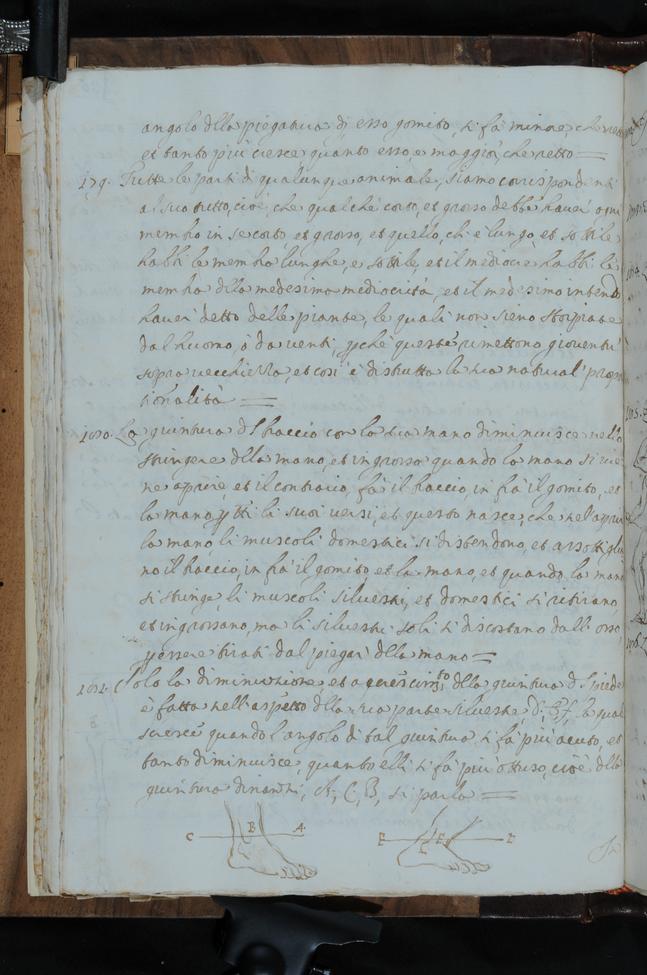 angolo della piegatura di esso gomito, si fà minore, che retto
et tanto più cresce quanto esso, e maggior, che retto
179. Tutte le parti di qualunque animale, siamo corrispondenti
al suo tutto, cioè, che qual che corto, et grosso debbe haver' ogni
membro in se corto et grosso, et quello, ch'è lungo, et sottile
habbi le membra lunghe, e sottile, et il mediocre habbi le
membra della medesima mediocrità, et il medesimo intendo
haver' detto delle piante, le quali non sieno storpiate
dal huomo, o da venti, perche queste, rimettono gioventù
sopra vecchiezza, et così è distrutta la sua natural' propor
tionalità
180. La giuntura del braccio con la sua mano diminuisce nello
stringere della mano, et ingrossa quando la mano si vie
ne aprire, et il contrario, fà il braccio, in frà il gomito, et
la mano per tti li suoi versi, et questo nasce, che nel'aprir
la mano, li muscoli domestici si distendono, et assottiglia
no il braccio, in frà il gomito, et la mano, et quando la mano
si stringe, li muscoli silvestri, et domestici si ritirano,
et ingrossano, ma li silvestri soli si discostano dall' osso,
per essere tirati dal piegar della mano
181. Solo la diminuzione et accrescimto della giuntura del piede
è fatta nell'aspetto della sua parte silvestre, D, E, F, la qual
cresce quando l'angolo di tal giuntura si fà più acuto, et
tanto diminuisce, quanto elli si fà più ottuso, cioè della
giuntura dinanzi, A, C, B, si parla
C B A F E